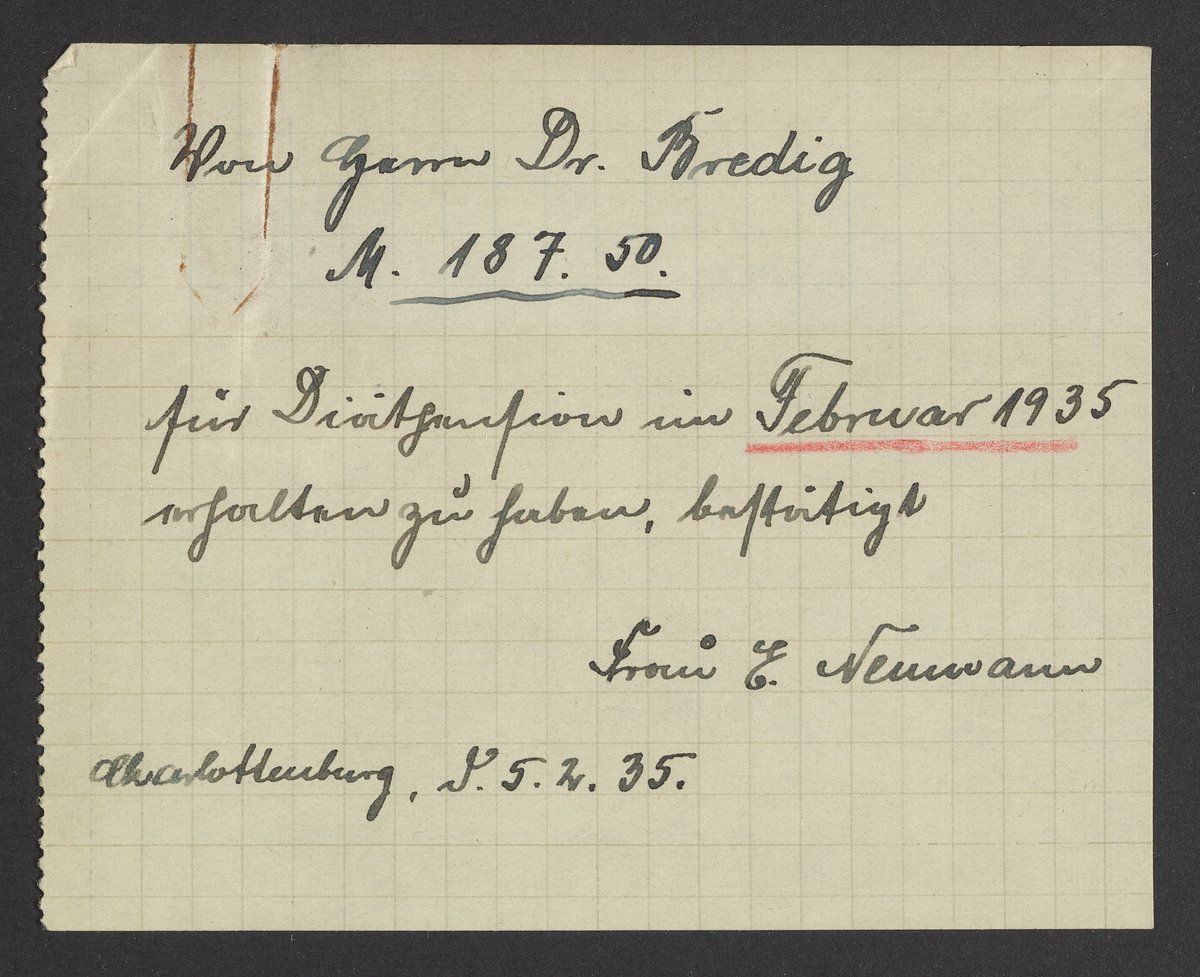 Von Herrn Dr. Bredig
M. 187.50.
für Diätpension im Februar 1935
erhalten zu haben, bestätigt
Frau E. Neumann
Charlottenburg, d. 5.2.35.